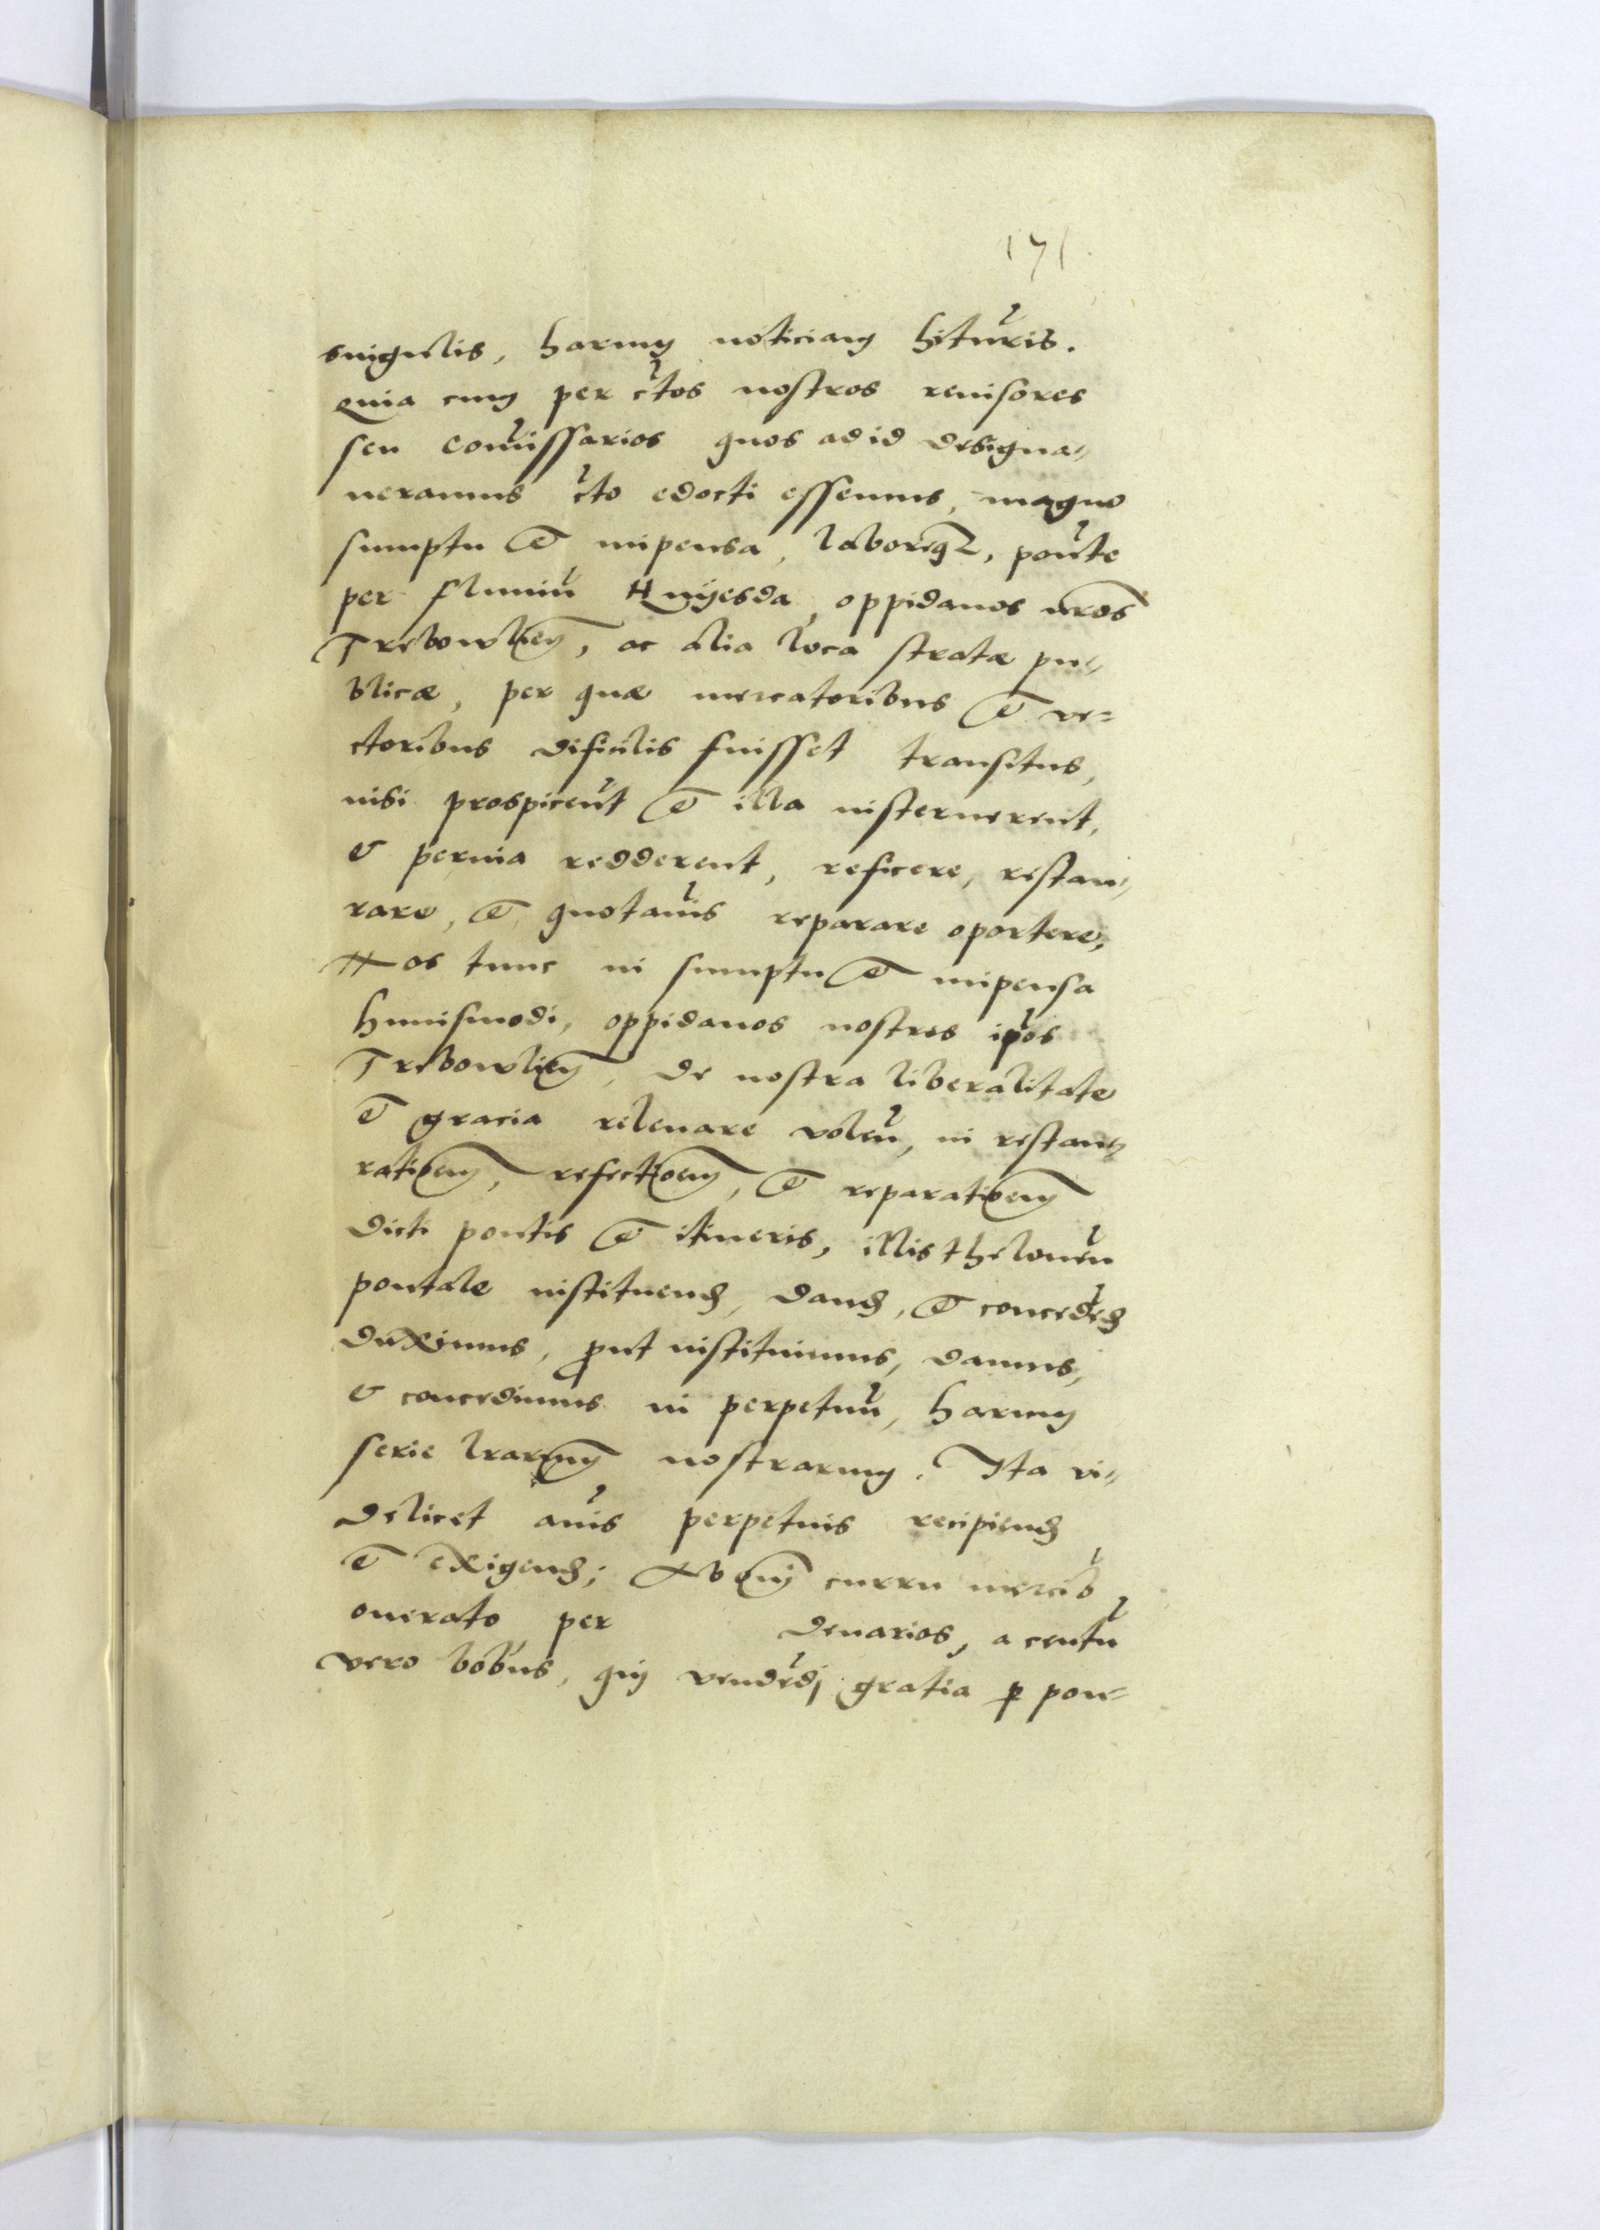 171
singulis, harum noticiam hituris.
Quia cum per ctos nostros revisores
seu comissarios quos ad id designa-
veramus cto edocti essemus, magno
sumptu et impensa, laboreq3, ponte
per fluviu Hnyesda, oppidanos nros
Trebowlien, ac alia loca stratæ pu-
blicæ, per quæ mercatoribus et ve-
ctoribus dificilis fuisset transitus,
nisi prospicent et illa insternerent,
& pervia redderent, reficere, restau-
rare, et quotanis reparare oportere,
Nos tunc in sumptu et impensa
huiusmodi, oppidanos nostros ipos
Trebowlien, de nostra liberalitate
et gracia relevare volen, in restau-
rationem, refectionem, et reparationem
dicti pontis et itineris, illis theloneu
pontale instituend, dand, et concedend
duximus, prout instituimus, damus,
& concedimus in perpetuu, harum
serie lrarum nostrarum. Ita vi-
delicet anis perpetuis recipiend
et exigend; Ab omni curru mercib
onerato per denarios, a centu
vero bobus, qui vendedi gratia p pon-